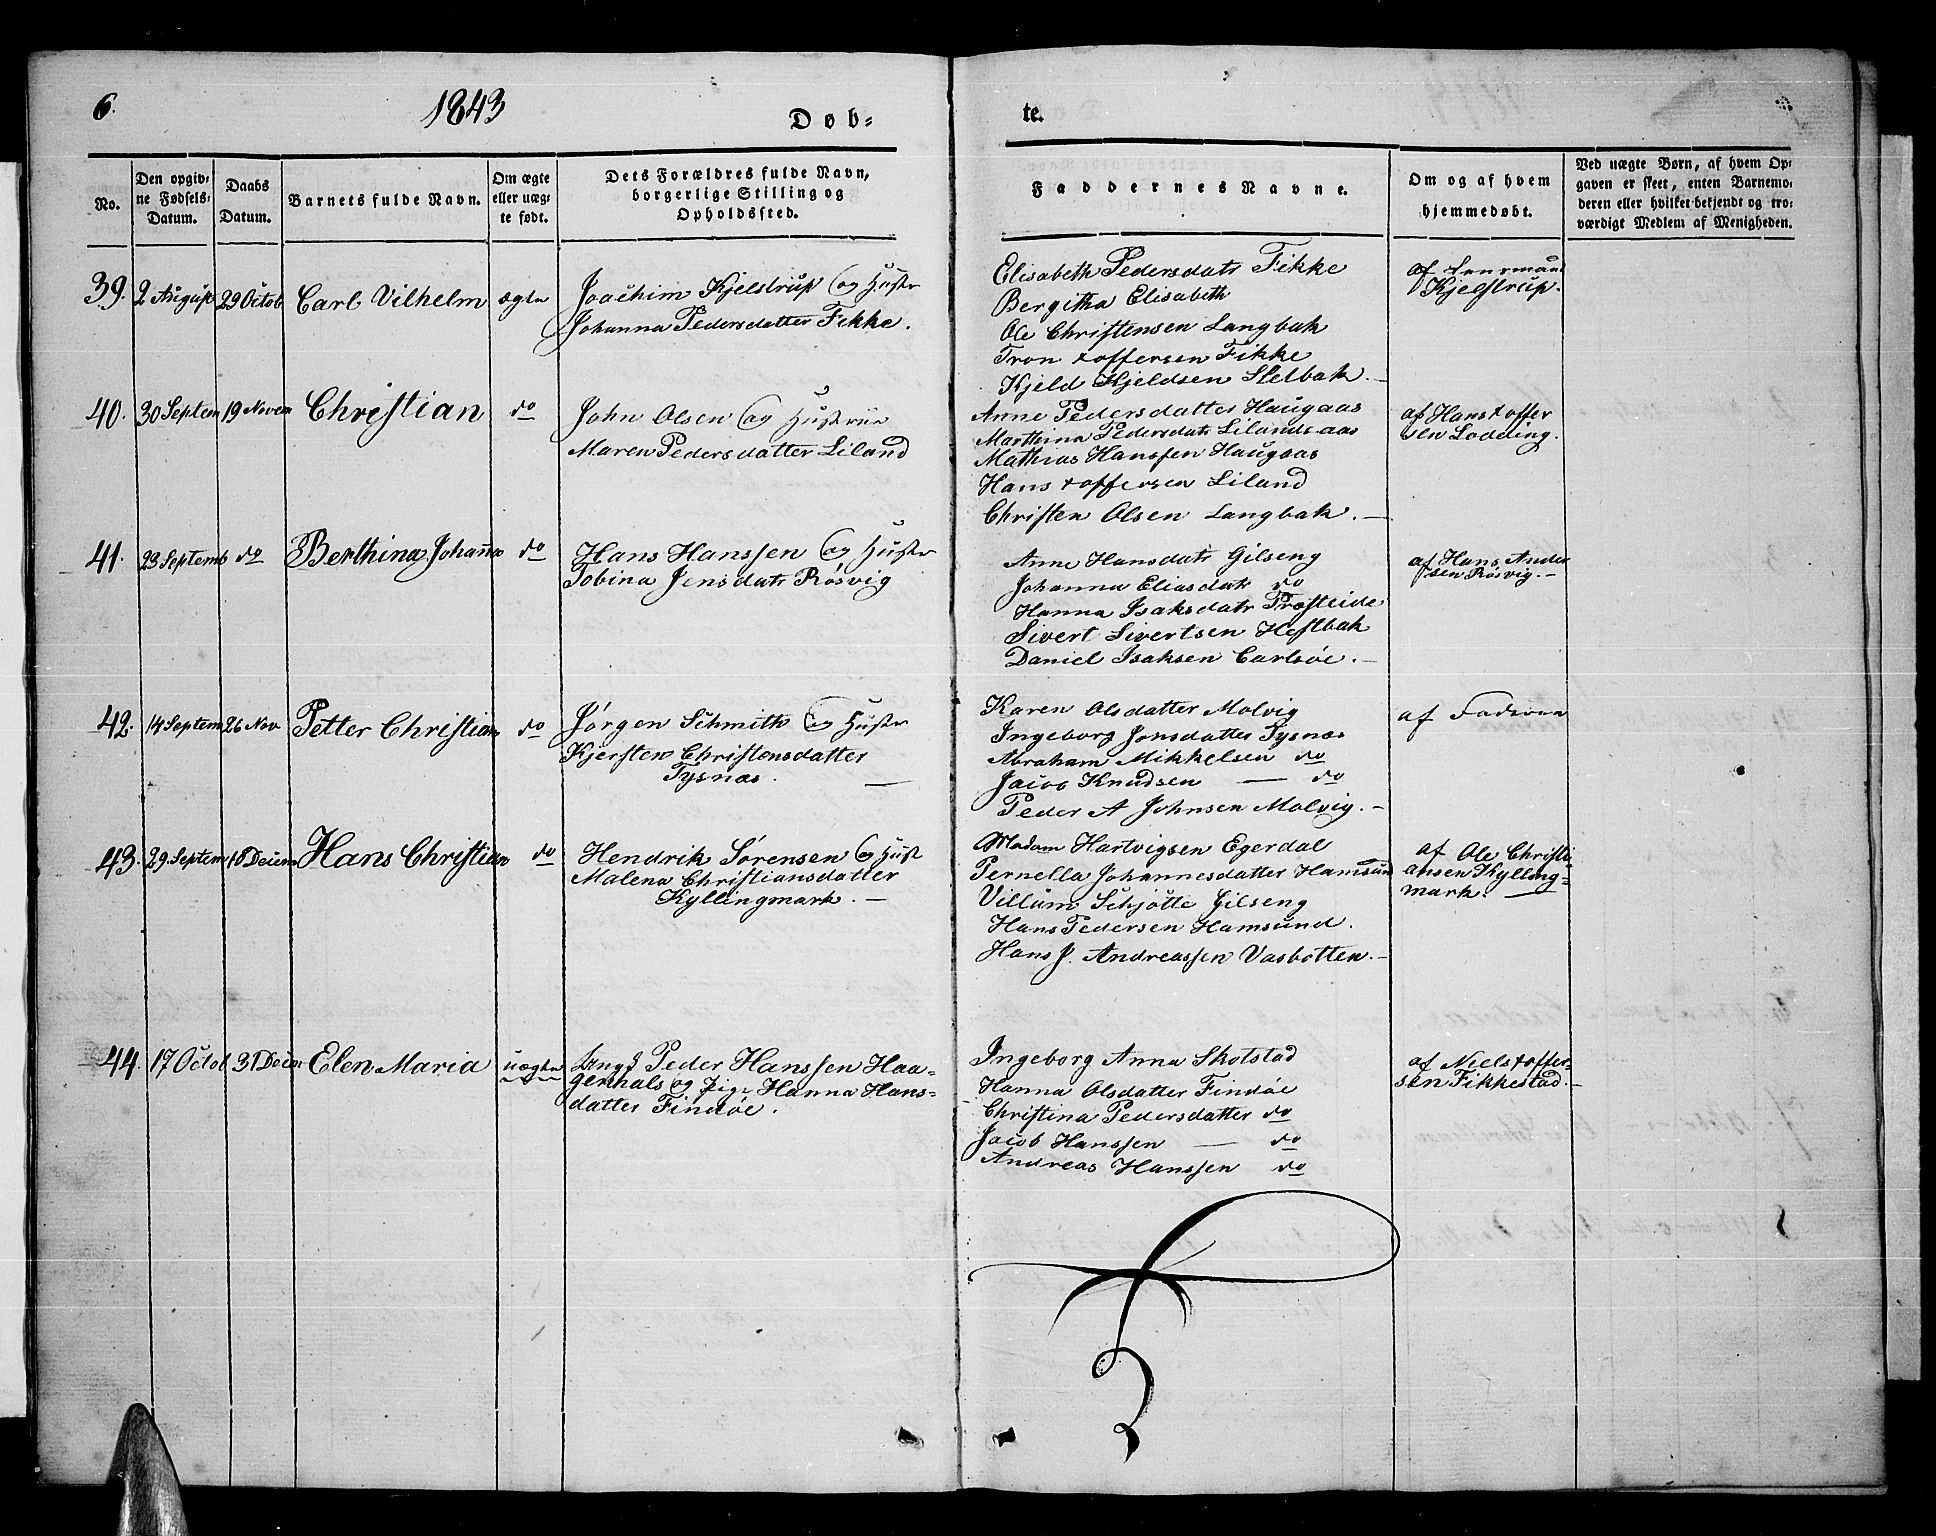 6.
1843
Døb-
te.
No.
Den opgiv-
ne Fødsels-
Datum.
Daabs
Datum.
Barnets fulde Navn.
Om ægte
eller uæg-
te født.
Dets Forældres fulde Navn,
borgerlige Stilling og
Opholdssted.
Faddernes Navne.
Om og af hvem
hjemmedøbt.
Ved uægte Børn, af hvem Op-
gaven er skeet, enten Barnemo-
deren eller hvilket bekjendt og tro-
værdigt Medlem af Menigheden.
39.
2 August
29 Octob
Carl Vilhelm
ægte
Joachim Kjelstrup og Hustr
Johanna Pedersdatter Fikke.
Elisabeth Pedersdatr Fikke
Bergitha Elisabeth
Ole Christensen Langbak
Tron xoffersen Fikke
Kjeld Kjeldsen Stelbak.
af Lensmand
Kjelstrup.
40.
30 Septem
19 Novem
Christian
do
John Olsen og Hustrue
Maren Pedersdatter Liland
Anne Pedersdatter Haugaas
Marthina Pedersdatr Lilandsaas
Mathias Hanssen Haugaas
Hans xoffersen Liland
Christen Olsen Langbak.
af Hans xoffer
sen Lodding.
41.
23 Septemb
do
Berthina Johanna
do
Hans Hanssen og Hustr
Tobina Jensdatr Røsvig
Anne Hansdatr Gilseng
Johanna Eliasdatr do
Hanna Isaksdatr Trosteide
Sivert Sivertsen Hestbak
Daniel Isaksen Carlsøe.
af Hans Ander
sen Røsvig.
42.
14 Septem
26 Nov
Petter Christian
do
Jørgen Schmith og Hustr
Kjersten Christensdatter
Tysnæs.
Karen Olsdatter Molvig
Ingeborg Jonsdatter Tysnæs
Abraham Mikkelsen do
Jacob Knudsen do
Peder A Johnsen Molvig.
af Faderen
43.
29 Septem
10 Decem
Hans Christian
do
Hendrik Sørensen og Hust
Malena Christiansdatter
Kyllingmark.
Madam Hartvigsen Egerdal
Pernella Johannesdatter Hamsund
Villum Schjøtte Gilseng
Hans Pedersen Hamsund.
Hans J. Andreassen Vasbotten.
af Ole Christi
ansen Kylling-
mark.
44.
17 Octob
31 Decem
Elen Maria
uægte
Ungk Peder Hanssen Haa-
gernhals og Pige Hanna Hans-
datter Findøe.
Ingeborg Anna Skotstad
Hanna Olsdatter Findøe
Christina Pedersdatter do
Jacob Hanssen do
Andreas Hanssen do
af Niels xoffer-
sen Fikkestad.